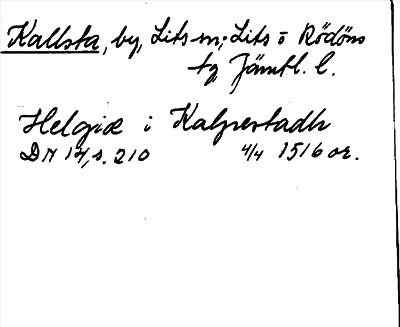 Kallsta, by, Lits sn; Lits o Rödöns
tg Jämtl. l.
Helgiæ i Kalgestadh
DN 14, s. 210 4/4 1516 or.